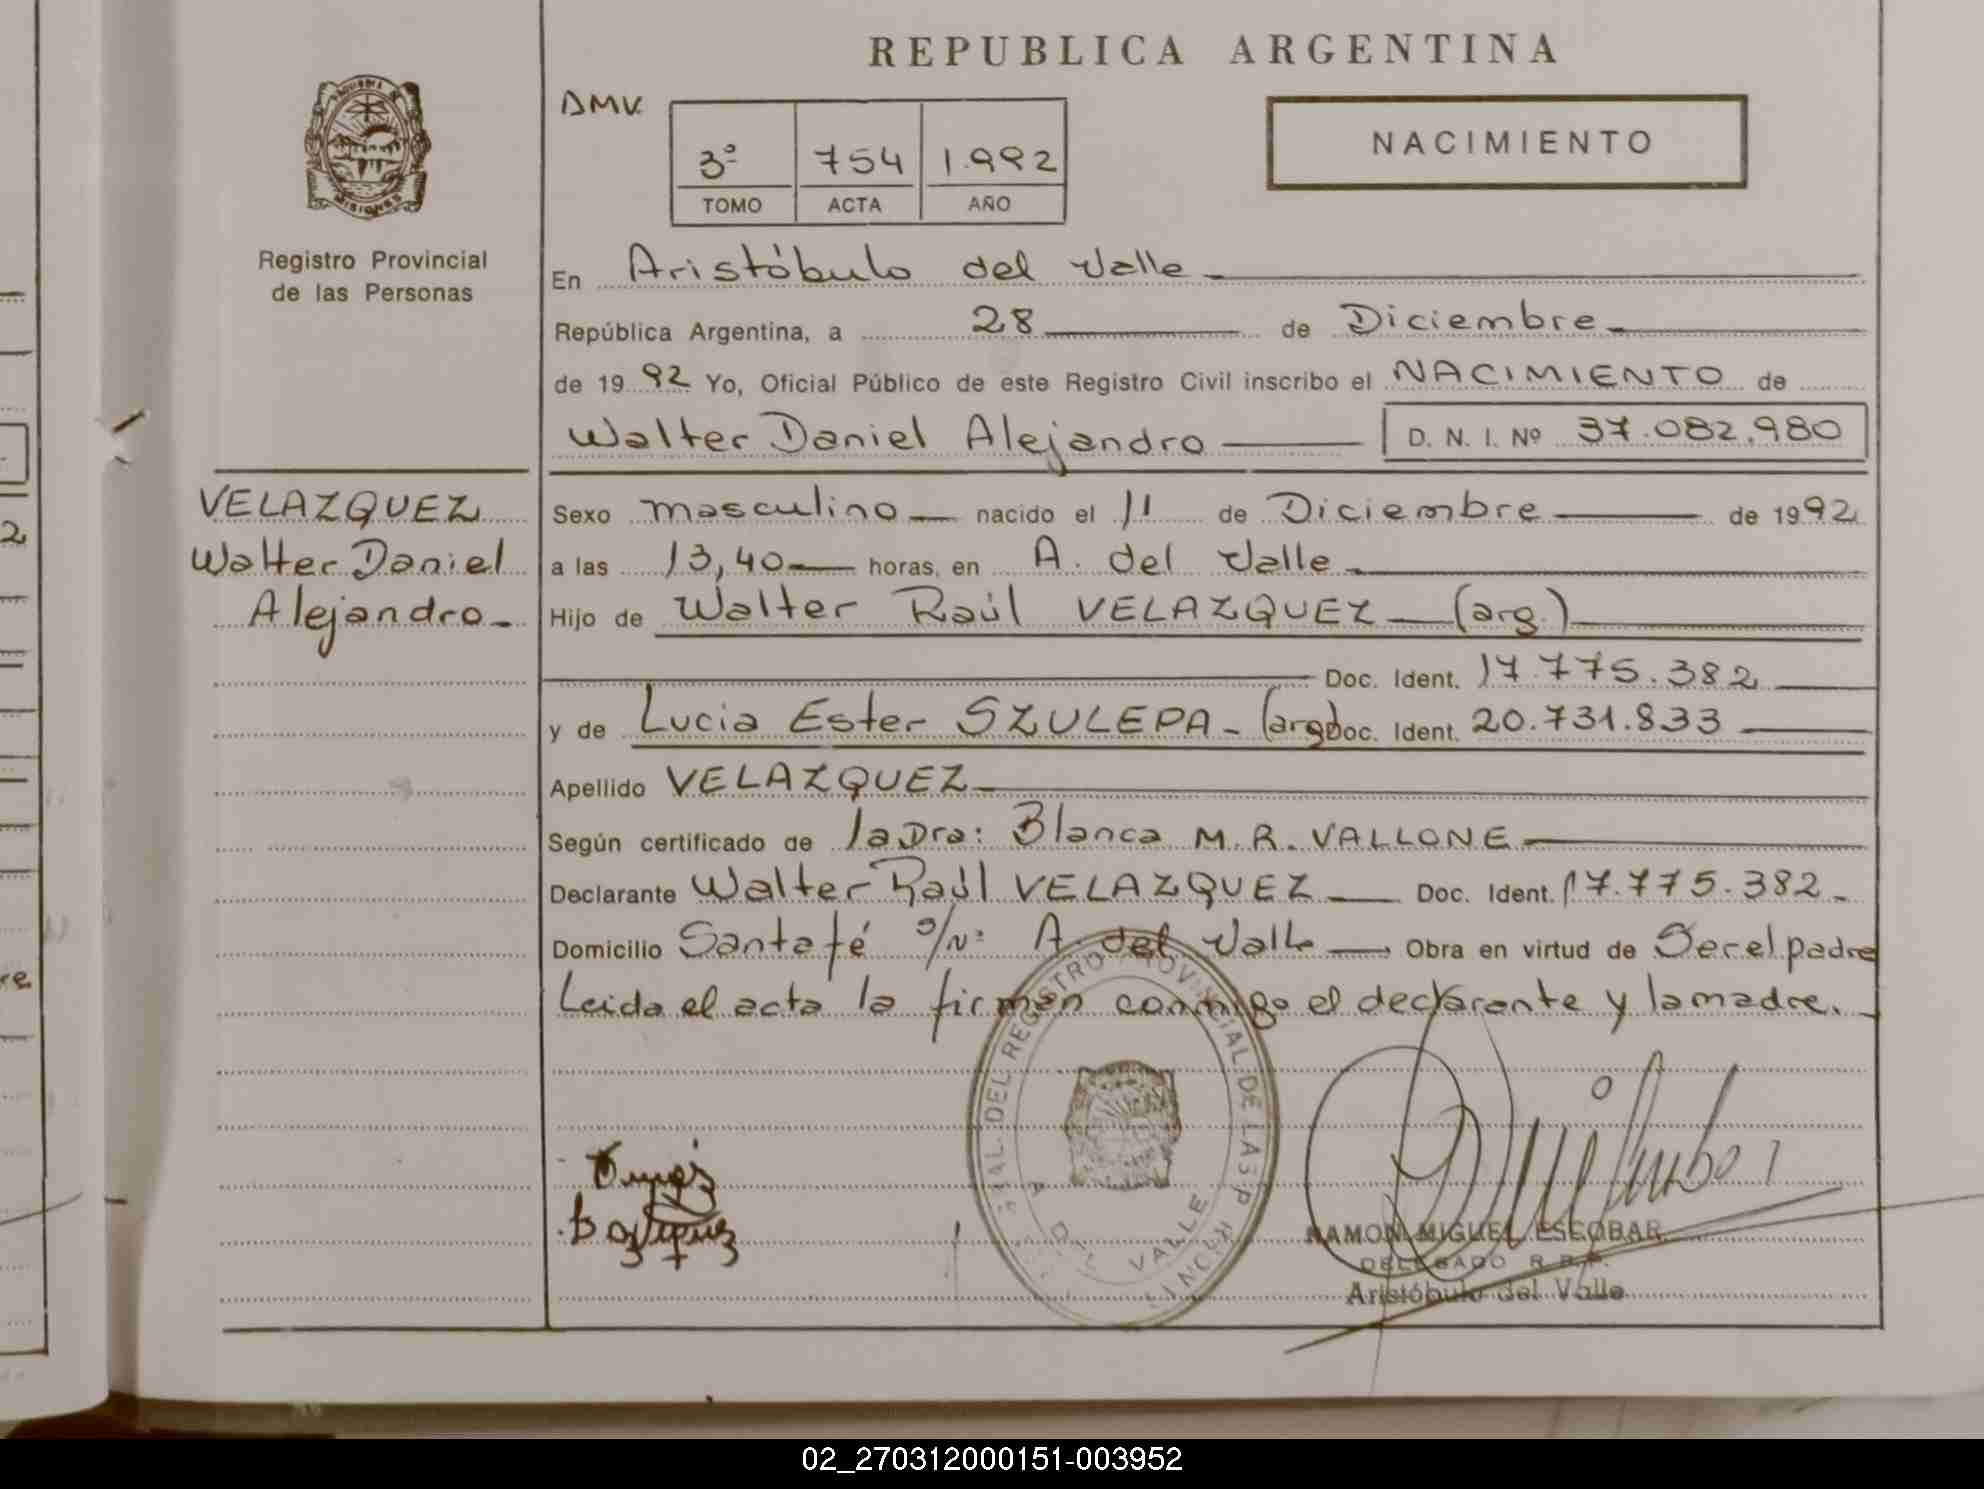 REPUBLICA ARGENTINA
DMV.
3º 754 1.992
TOMO ACTA AÑO
NACIMIENTO
MISIONES
Registro Provincial
de las Personas
En Aristóbulo del Valle
República Argentina, a 28 de Diciembre
de 19 92 Yo, Oficial Público de este Registro Civil inscribo el NACIMIENTO de
Walter Daniel Alejandro D. N. I. Nº 37.082.980
VELAZQUEZ
Walter Daniel
Alejandro
Sexo masculino nacido el 11 de Diciembre de 1992
a las 13,40 horas, en A. del Valle
Hijo de Walter Raúl VELAZQUEZ (arg.)
Doc. Ident. 17.775.382
y de Lucia Ester SZULEPA - (arg) Doc. Ident. 20.731.833
Apellido VELAZQUEZ
Según certificado de la Dra: Blanca M. R. VALLONE
Declarante Walter Raúl VELAZQUEZ Doc. Ident. 17.775.382
Domicilio Santa fé s/Nº A. del Valle Obra en virtud de Ser el padre
Leida el acta la firman conmigo el declarante y la madre.
DEL REGISTRO PROVINCIAL DE LAS P
VALLE
RAMON MIGUEL ESCOBAR
DELEGADO R.P.P.
Aristóbulo del Valle
02_270312000151-003952